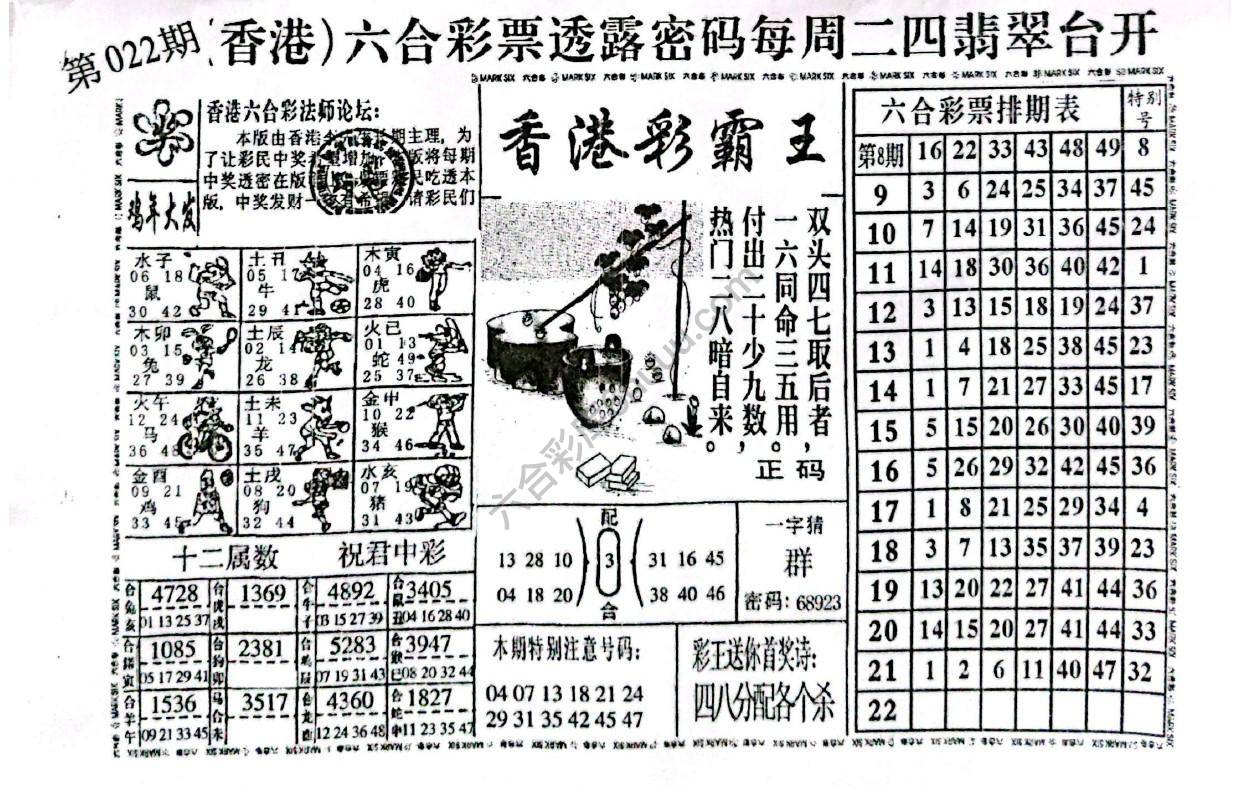 第022期
(香港)六合彩票透露密码每周二四翡翠台开
鸡年大发
香港六合彩法师论坛:
本版由香港
期主理，为
了让彩民中奖
增加
版将每期
中奖透密在版
民吃透本
版，中奖发财
有希
请彩民们
水子
06 18
鼠
30 42
土丑
05 17
牛
29 41
木寅
04 16
虎
28 40
木卯
03 15
兔
27 39
土辰
02 14
龙
26 38
火巳
01 13
蛇 49
25 37
火午
12 24
马
36 48
土未
11 23
羊
35 47
金申
10 22
猴
34 46
金酉
09 21
鸡
33 45
土戌
08 20
狗
32 44
水亥
07 19
猪
31 43
十二属数 祝君中彩
合兔亥 4728 01 13 25 37
合虎戌 1369
合牛子 4892 03 15 27 39
合鼠丑 3405 04 16 28 40
合猪寅 1085 05 17 29 41
合狗卯 2381
合鸡辰 5283 07 19 31 43
合猴巳 3947 08 20 32 44
合羊午 1536 09 21 33 45
马合未 3517
合龙酉 4360 12 24 36 48
合蛇申 1827 11 23 35 47
香港彩霸王
双头四七取后者，
一六同命三五用。
付出二十少九数，
热门二八暗自来。
正码
配
13 28 10 3 31 16 45
04 18 20 38 40 46
合
一字猜
群
密码: 68923
本期特别注意号码:
04 07 13 18 21 24
29 31 35 42 45 47
彩王送你首奖诗:
四八分配各个杀
六合彩票排期表 特别号
第8期 16 22 33 43 48 49 8
9 3 6 24 25 34 37 45
10 7 14 19 31 36 45 24
11 14 18 30 36 40 42 1
12 3 13 15 18 19 24 37
13 1 4 18 25 38 45 23
14 1 7 21 27 33 45 17
15 5 15 20 26 30 40 39
16 5 26 29 32 42 45 36
17 1 8 21 25 29 34 4
18 3 7 13 35 37 39 23
19 13 20 22 27 41 44 36
20 14 15 20 27 41 44 33
21 1 2 6 11 40 47 32
22